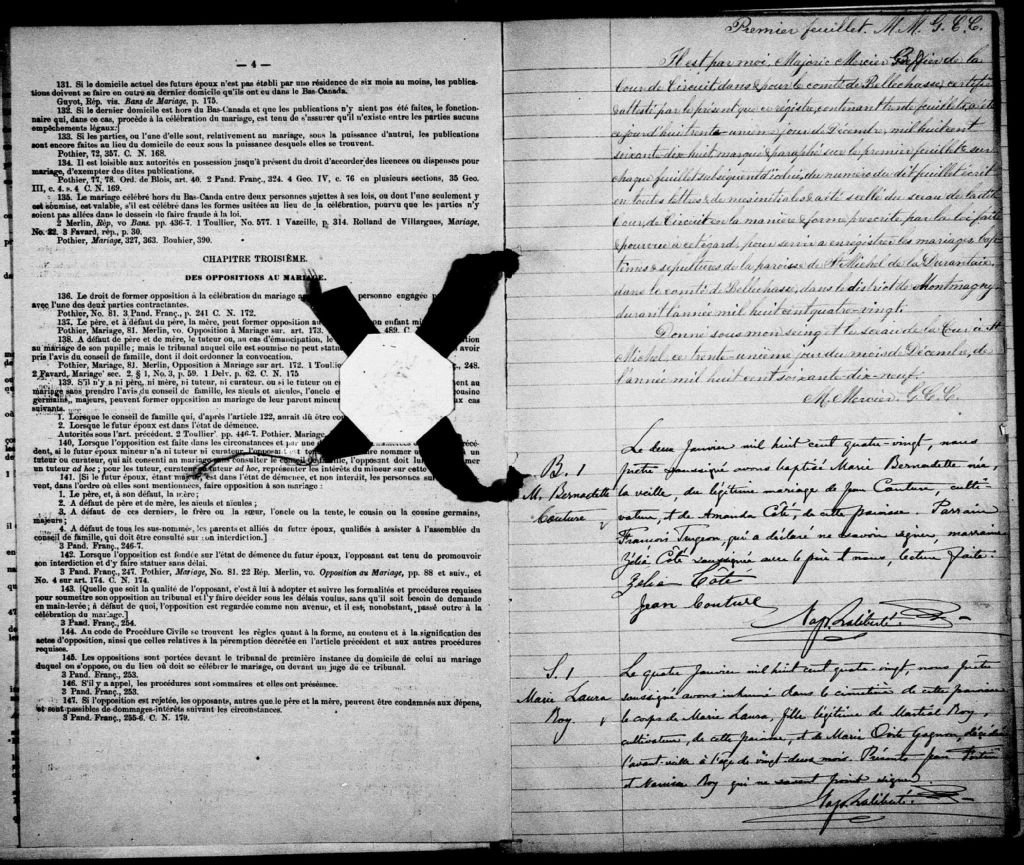 — 4 —
131. Si le domicile actuel des futurs époux n'est pas établi par une résidence de six mois au moins, les publica-
tions doivent se faire en outre au dernier domicile qu'ils ont eu dans le Bas-Canada.
Guyot, Rép. vis. Bans de Mariage, p. 175.
132. Si le dernier domicile est hors du Bas-Canada et que les publications n'y aient pas été faites, le fonction-
naire qui, dans ce cas, procède à la célébration du mariage, est tenu de s'assurer qu'il n'existe entre les parties aucuns
empêchements légaux:
133. Si les parties, ou l'une d'elle sont, relativement au mariage, sous la puissance d'autrui, les publications
sont encore faites au lieu du domicile de ceux sous la puissance desquels elles se trouvent.
Pothier, 72, 357. C. N. 168.
134. Il est loisible aux autorités en possession jusqu'à présent du droit d'accorder des licences ou dispenses pour
mariage, d'exempter des dites publications.
Pothier, 77, 78. Ord. de Blois, art. 40. 2 Pand. Franç., 324. 4 Geo. IV, c. 76 en plusieurs sections, 35 Geo.
III, c. 4. s. 4 C. N. 169.
135. Le mariage célébré hors du Bas-Canada entre deux personnes sujettes à ses lois, ou dont l'une seulement y
est soumise, est valable, s'il est célébré dans les formes usitées au lieu de la célébration, pourvu que les parties n'y
soient pas allées dans le dessein de faire fraude à la loi.
2 Merlin, Rép, vo Bans. pp. 436-7. 1 Toullier, No. 577. 1 Vazeille, p. 314. Rolland de Villargues, Mariage,
No. 22. 3 Favard, rép., p. 30.
Pothier, Mariage, 327, 363. Bouhier, 390.
CHAPITRE TROISIÈME.
DES OPPOSITIONS AU MARIAGE.
136. Le droit de former opposition à la célébration du mariage personne engagée
avec l'une des deux parties contractantes.
Pothier, No. 81. 3 Pand. Franç., p. 241 C. N. 172.
137. Le père, et à défaut du père, la mère, peut former opposition au enfant
Pothier, Mariage, 81. Merlin, vo. Opposition à Mariage sur. art. 173. 489.
138. A défaut de père et de mère, le tuteur ou, au cas d'émancipation, le
au mariage de son pupille; mais le tribunal auquel elle est soumise ne peut avoir
pris l'avis du conseil de famille, dont il doit ordonner la convocation.
Pothier, Mariage, 81. Merlin, Opposition à Mariage sur art. 172. 1 248.
2 Favard, Mariage sec. 2, § 1, No. 3, p. 59. 1 Delv. p. 62. C. N. 175
139. S'il n'y a ni père, ni mère, ni tuteur, ni curateur, ou si le tuteur ou au
mariage sans prendre l'avis du conseil de famille, les aïeuls et aïeules, l'oncle cousins
germains, majeurs, peuvent former opposition au mariage de leur parent mineur cas
suivants.
1. Lorsque le conseil de famille qui, d'après l'article 122, aurait dû être
2. Lorsque le futur époux est dans l'état de démence.
Autorités sous l'art. précédent. 2 Toullier pp. 446-7. Pothier. Mariage
140. Lorsque l'opposition est faite dans les circonstances et par
dent, si le futur époux mineur n'a ni tuteur ni
tuteur ou curateur, qui ait consenti au mariage le conseil de famille, l'opposant doit lui
un tuteur ad hoc; pour les tuteur, tuteur ad hoc, représenter les intérêts du mineur sur cette
141. [Si le futur époux, étant majeur, est dans l'état de démence, et non interdit, les personnes
vent, dans l'ordre où elles sont mentionnées, faire opposition à son mariage:
1. Le père, et, à son défaut, la mère;
2. A défaut de père et de mère, les aïeuls et aïeules;
3. A défaut de ces derniers, le frère ou la sœur, l'oncle ou la tante, le cousin ou la cousine germains,
majeurs;
4. A défaut de tous les sus-nommés, les parents et alliés du futur époux, qualifiés à assister à l'assemblée du
conseil de famille, qui doit être consulté sur son interdiction.]
3 Pand. Franç., 246-7.
142. Lorsque l'opposition est fondée sur l'état de démence du futur époux, l'opposant est tenu de promouvoir
son interdiction et d'y faire statuer sans délai.
3 Pand. Franç., 247. Pothier, Mariage, No. 81. 22 Rép. Merlin, vo. Opposition au Mariage, pp. 88 et suiv., et
No. 4 sur art. 174. C. N. 174.
143. [Quelle que soit la qualité de l'opposant, c'est à lui à adopter et suivre les formalités et procédures requises
pour soumettre son opposition au tribunal et l'y faire décider sous les délais voulus, sans qu'il soit besoin de demande
en main-levée; à défaut de quoi, l'opposition est regardée comme non avenue, et il est, nonobstant, passé outre à la
célébration du mariage.]
3 Pand. Franç., 254.
144. Au code de Procédure Civile se trouvent les règles quant à la forme, au contenu et à la signification des
actes d'opposition, ainsi que celles relatives à la péremption décrétée en l'article précédent et aux autres procédures
requises.
145. Les oppositions sont portées devant le tribunal de première instance du domicile de celui au mariage
duquel on s'oppose, ou du lieu où doit se célébrer le mariage, ou devant un juge de ce tribunal.
3 Pand. Franç., 253.
146. S'il y a appel, les procédures sont sommaires et elles ont préséance.
3 Pand. Franç., 253.
147. Si l'opposition est rejetée, les opposants, autres que le père et la mère, peuvent être condamnés aux dépens,
et sont passibles de dommages-intérêts suivant les circonstances.
3 Pand. Franç., 255-6. C. N. 179.
Premier feuillet. M. M. G. C. C.
Il est par moi, Majoric Mercier Greffier de la
Cour de Circuit dans & pour le comté de Bellechasse certifié
& attesté par le présent que ce registre, contenant trente feuillets a été
ce jourd'hui trente-unième jour de Décembre, mil huit cent
soixante-dix-huit marqué & paraphé sur le premier feuillet & sur
chaque feuillet subséquent d'icelui, du numéro du dit feuillet écrit
en toutes lettres & de mes initiales & a été scellé du sceau de la dite
Cour de Circuit en la manière & forme prescrite par la loi faite
& pourvue à cet égard, pour servir à enregistrer les mariages, bap-
têmes & sépultures de la paroisse de St Michel de la Durantaie,
dans le comté de Bellechasse, dans le district de Montmagny
durant l'année mil huit cent quatre-vingt.
Donné sous mon seing & le sceau de la Cour, à St
Michel, ce trente-unième jour du mois de Décembre, de
l'année mil huit cent soixante dix-neuf.
M. Mercier G.C.C.
B. 1
M. Bernadette
Couture
Le deux Janvier mil huit cent quatre-vingt, nous
prêtre soussigné avons baptisé Marie Bernadette née,
la veille, du légitime mariage de Jean Couture, culti-
vateur, & de Amanda Côté, de cette paroisse. Parrain
François Turgeon, qui a déclaré ne savoir signer, marraine
Zélia Côté soussignée avec le père & nous, lecture faite.
Zélia Côté
Jean Couture
Nap. Laliberté
S. 1
Marie Laura
Roy
Le quatre Janvier mil huit cent quatre-vingt, nous prêtre
soussigné avons inhumé dans le cimetière de cette paroisse
le corps de Marie Laura, fille légitime de Martial Roy,
cultivateur, de cette paroisse, & de Marie Gagnon, décédée
l'avant-veille à l'age de vingt-deux mois. Présents Jean
& Narcisse Roy qui ne savent point signer.
Nap. Laliberté